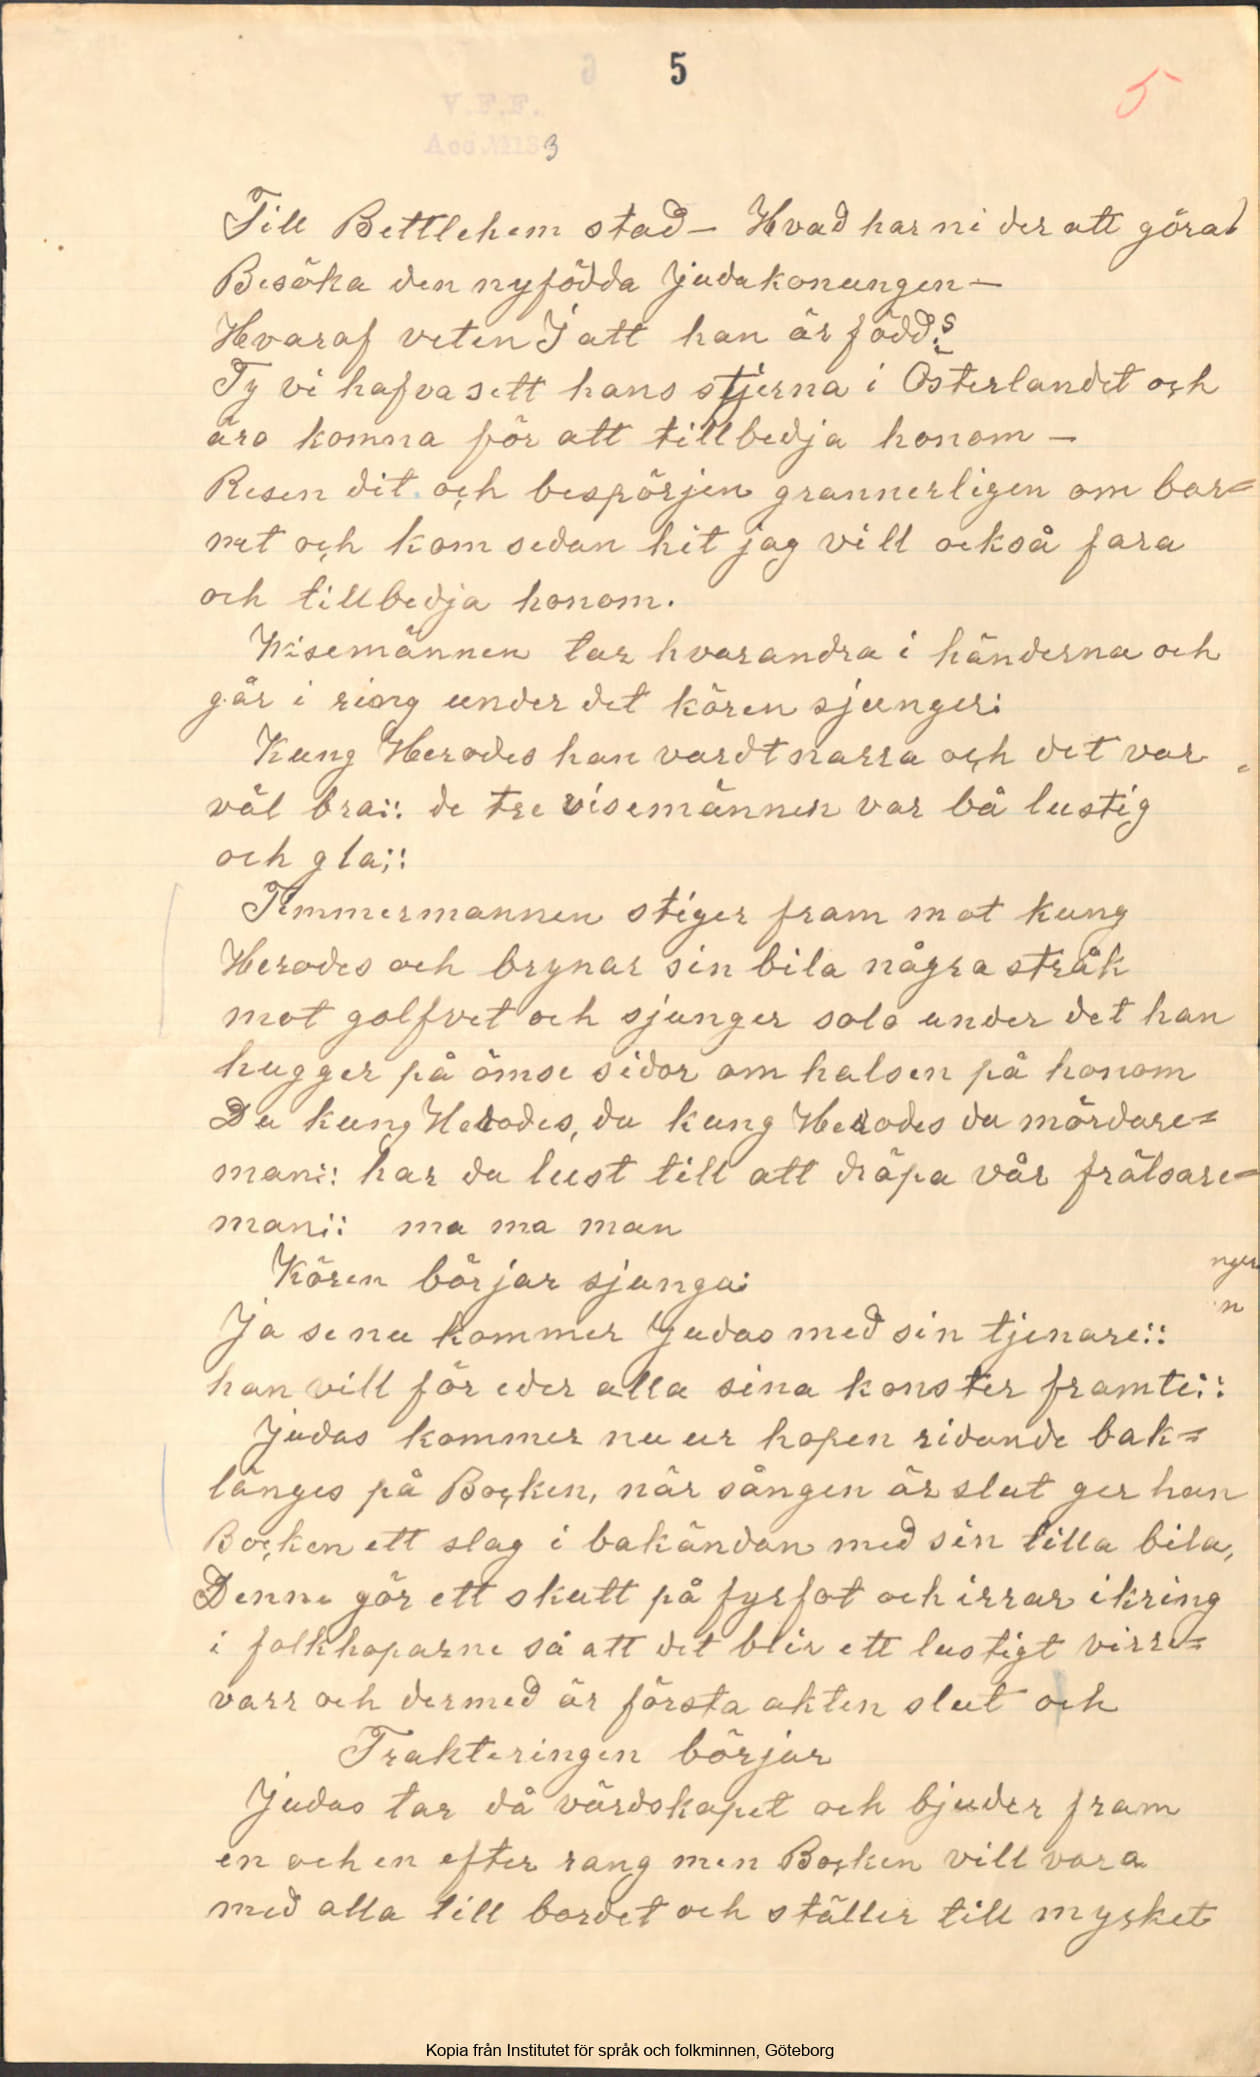 5
5
V.F.F.
Acc. N 1183
Till Bettlehem stad – Hvad har ni der att göra?
Besöka den nyfödda Judakonungen –
Hvaraf veten I att han är född?
Ty vi hafva sett hans stjerna i Österlandet och
äro komna för att tillbedja honom –
Resen dit och bespörjen grannerligen om bar=
net och kom sedan hit jag vill också fara
och tillbedja honom.
Wisemännen tar hvarandra i händerna och
går i ring under det kören sjunger:
Kung Herodes han vardt narra och det var
väl bra:: de tre visemännen var bå lustig
och gla::
Timmermannen stiger fram mot kung
Herodes och brynar sin bila några stråk
mot golfvet och sjunger solo under det han
hugger på ömse sidor om halsen på honom
Du kung Herodes, du kung Herodes du mördare=
man:: har du lust till att dräpa vår frälsare=
man:: ma ma man
Kören börjar sjunga:
Ja se nu kommer Judas med sin tjenare::
han vill för eder alla sina konster framte::
Judas kommer nu ur hopen ridande bak=
länges på Bocken, när sången är slut ger han
Bocken ett slag i bakändan med sin lilla bila,
Denne gör ett skutt på fyrfot och irrar ikring
i folkhoparne så att det blir ett lustigt virre=
varr och dermed är första akten slut och
Trakteringen börjar
Judas tar då värdskapet och bjuder fram
en och en efter rang men Bocken vill vara
med alla till bordet och ställer till mycket
Kopia från Institutet för språk och folkminnen, Göteborg